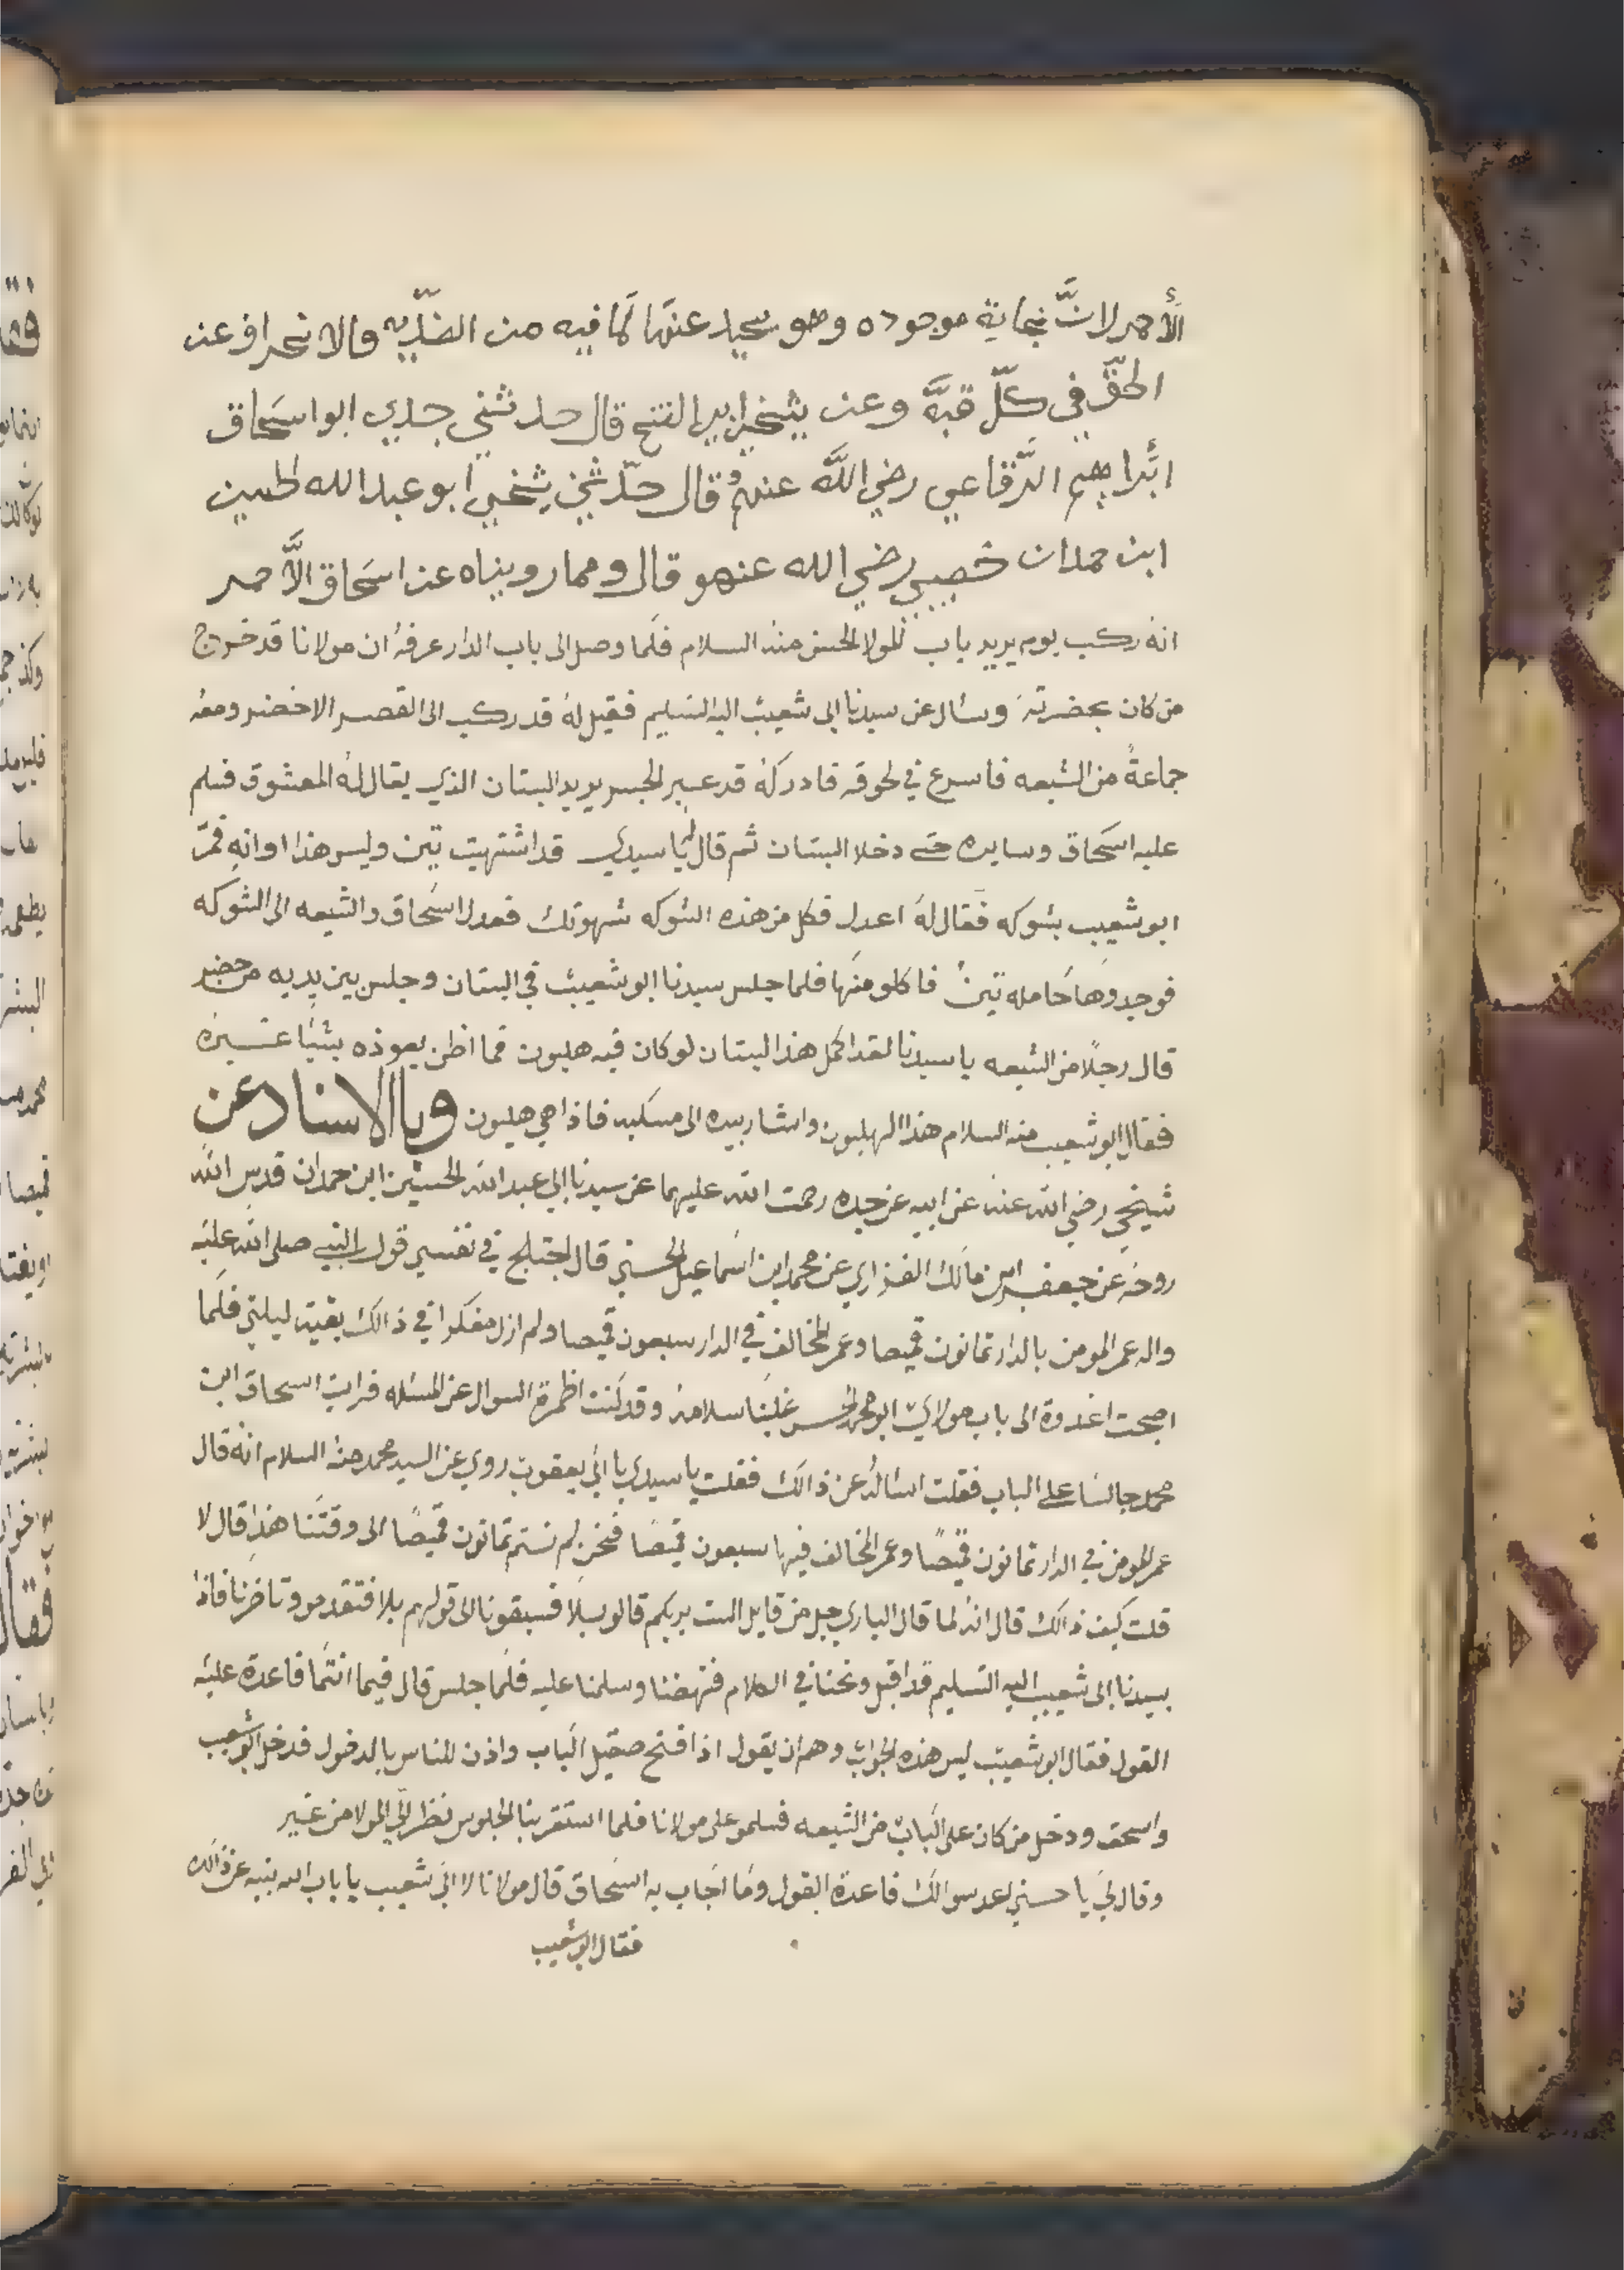 الأحمر لانَّ نجاية موجوده وهو سحيد عنها لما فيه من الضدّيه والانحراف عن
الحقّ في كلّ قبَّة وعن شيخي ابي الفتح قال حدثني جدي ابو اسحاق
ابراهيم الرّقاعي رضي اللّه عنهم قال حدّثني شيخي ابو عبد الله الحسين
ابن حمدان خصيبي رضي الله عنهو قال ومما رويناه عن اسحاق الأحمر
انه ركب يوم يريد باب المولا الحسن منه السلام فلما وصل الى باب الدار عرفه ان مولانا قد خروج
من كان بحضرته وسال عن سيدنا ابي شعيب اليه التسليم فقيل له قد ركب الى القصر الاخضر ومعه
جماعةً من الشيعه فاسرع في لحوقه فادركه قد عبر الجسر يريد البستان الذي يقال له المعشوق فسلم
عليه اسحاق وسايره حتى دخلا البستان ثم قال يا سيدي قد اشتهيت تين وليس هذا اوانه فمرّ
ابو شعيب بشوكه فقال له اعدل فكل من هذه الشوكه شهوتك فعدل اسحاق والشيعه الى الشوكه
فوجدوها حامله تين فاكلو منها فلما جلس سيدنا ابو شعيب في البستان وجلس بين يديه من حضر
قال رجلًا من الشيعه يا سيدنا لقد اكمل هذا البستان لو كان فيه هليون فما اظن يعوذه شيئًا غيره
فقال ابو شعيب منه السلام هذا الهليون واشار بيده الى مسكبه فاذا هي هليون وبالاسناد عن
شيخي رضي الله عنه عن ابيه عن جده رحمت الله عليهما عن سيدنا ابي عبد الله الحسين ابن حمدان قدس الله
روحه عن جعفر ابن مالك الفزاري عن محمد ابن اسماعيل الحسني قال اختلج في نفسي قول النبي صلى الله عليه
واله عمر المومن بالدار ثمانون قميصا وعمر المخالف في الدار سبعون قميصا ولم ازل مفكرا في ذالك بقيت ليلتي فلما
اصبحت اغدوة الى باب مولاي ابو محمد الحسن علينا سلامه وقد كنت اظمرة السوال عن المسئله فرايت اسحاق ابن
محمد جالسا على الباب فقلت اسئاله عن ذالك فقلت يا سيدي يا ابي يعقوب روي عن السيد محمد منه السلام انه قال
عمر المومن في الدار ثمانون قميصًا وعمر المخالف فيها سبعون قميصًا فنحن لم نستم ثمانون قميصًا الى وقتنا هذا قال لا
قلت كيف ذالك قال انه لما قال الباري جل من قايل الست بربكم قالو بلا فسبقونا الى قولهم بلا فتقدمو وتاخرنا فاذا
بسيدنا ابي شعيب اليه التسليم قد اقبل ونحنا في الكلام فنهضنا وسلمنا عليه فلما جلس قال فيما انتما فاعدة عليه
القول فقال ابو شعيب ليس هذه الجواب وهم ان يقول اذا فتح صقيل الباب واذن للناس بالدخول فدخل ابو شعيب
واسحق ودخل من كان على الباب من الشيعه فسلمو على مولانا فلما استقر بنا الجلوس نظر الي المولا من غير
وقال لي يا حسني اعد سوالك فاعدة القول وما اجاب به اسحاق قال مولانا لا ابي شعيب يا باب الله نبيه عن ذالك
فقال ابو شعيب